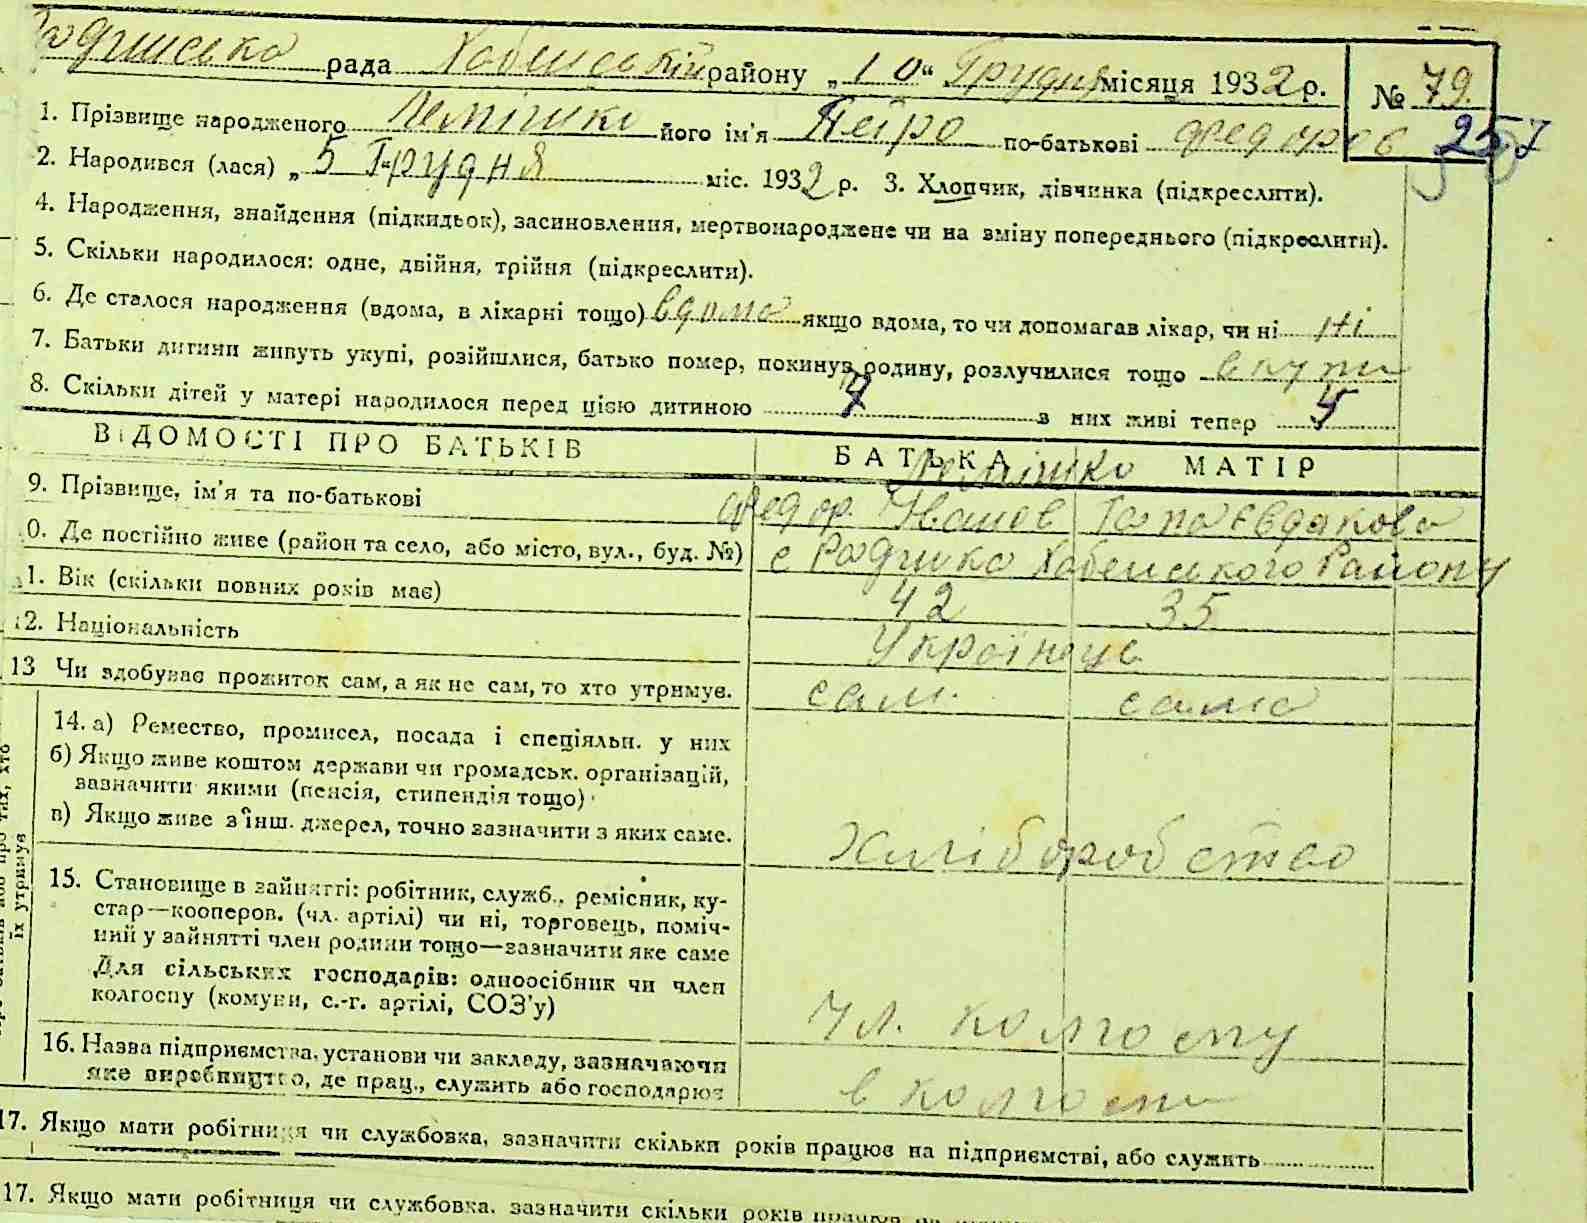 Радинська рада Хабенський району „10“ Грудня місяця 1932 р. № 79.
1. Прізвище народженого Лемішко його ім'я Петро по-батькові Федоров 257
2. Народився (лася) „5“ Грудня міс. 1932 р. 3. Хлопчик, дівчинка (підкреслити).
4. Народження, знайдення (підкидьок), засиновлення, мертвонароджене чи на зміну попереднього (підкреслити).
5. Скільки народилося: одне, двійня, трійня (підкреслити).
6. Де сталося народження (вдома, в лікарні тощо) вдома якщо вдома, то чи допомагав лікар, чи ні ні
7. Батьки дитини живуть укупі, розійшлися, батько помер, покинув родину, розлучилися тощо вкупи
8. Скільки дітей у матері народилося перед цією дитиною 7 з них живі тепер 5
ВІДОМОСТІ ПРО БАТЬКІВ БАТЬКА МАТІР
Лемішко
9. Прізвище, ім'я та по-батькові Федор. Іванов Гапа Євдакова
0. Де постійно живе (район та село, або місто, вул., буд. №) с Радинка Хабенського Району
1. Вік (скільки повних років має) 42 35
12. Національність Українець
13 Чи здобуває прожиток сам, а як не сам, то хто утримує. сам. сама
14. а) Ремество, промисел, посада і спеціяльн. у них
б) Якщо живе коштом держави чи громадськ. організацій,
зазначити якими (пенсія, стипендія тощо)
в) Якщо живе з інш. джерел, точно зазначити з яких саме. Хліборобство
15. Становище в зайнятті: робітник, служб., ремісник, ку-
стар—кооперов. (чл. артілі) чи ні, торговець, поміч-
ний у зайнятті член родини тощо—зазначити яке саме
Для сільських господарів: одноосібник чи член
колгоспу (комуни, с.-г. артілі, СОЗ'у) чл. колгоспу
16. Назва підприємства, установи чи закладу, зазначаючи
яке виробництво, де прац., служить або господарює в колгоспи
17. Якщо мати робітниця чи службовка, зазначити скільки років працює на підприємстві, або служить
17. Якщо мати робітниця чи службовка, зазначити скільки років працює на
їх утримує